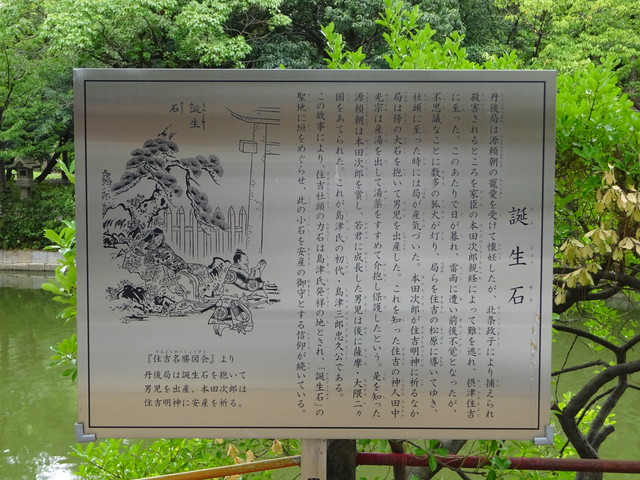 誕生石
丹後局は源頼朝の寵愛を受けて懐妊したが、北条政子により捕えられ
殺害されるところを家臣の本田次郎親経によって難を逃れ、摂津住吉
に至った。このあたりで日が暮れ、雷雨に遭い前後不覚となったが、
不思議なことに数多の狐火が灯り、局らを住吉の松原に導いてゆき、
社頭に至った時には局が産気づいた。本田次郎が住吉明神に祈るなか
局は傍の大石を抱いて男児を出産した。これを知った住吉の神人田中
光宗は産湯を出して湯薬をすすめて介抱し保護したという。是を知った
源頼朝は本田次郎を賞し、若君に成長した男児は後に薩摩・大隅二ヵ
国をあてられた。これが島津氏の初代、島津三郎忠久公である。
この故事により、住吉社頭の力石は島津氏発祥の地とされ、「誕生石」の
聖地に垣をめぐらせ、此の小石を安産の御守とする信仰が続いている。
誕生石
『住吉名勝図会』より
丹後局は誕生石を抱いて
男児を出産、本田次郎は
住吉明神に安産を祈る。